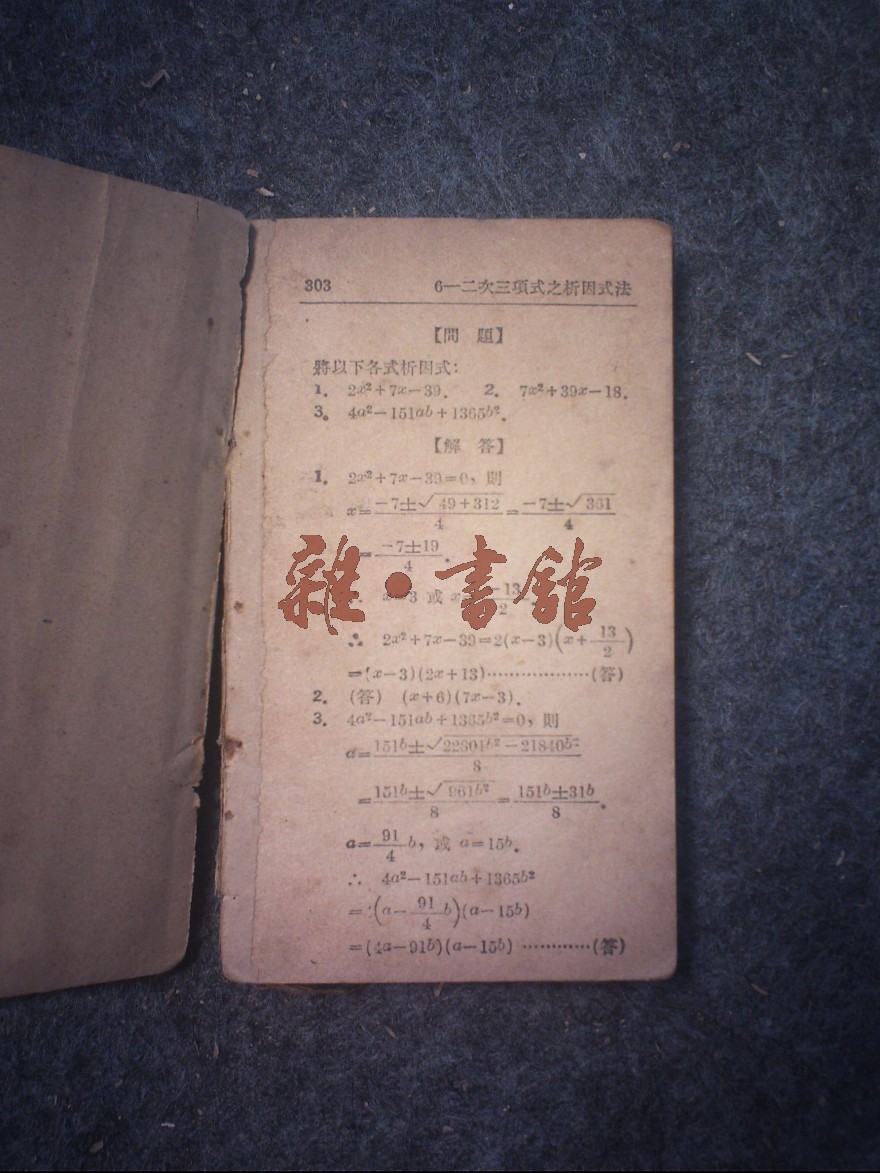 303 6—二次三項式之析因式法
【問 題】
將以下各式析因式:
1. 2x²+7x−39. 2. 7x²+39x−18.
3. 4a²−151ab+1365b².
【解 答】
1. 2x²+7x−39=0, 則
x=\frac{−7±√49+312}{4}=\frac{−7±√361}{4}
=\frac{−7±19}{4}.
∴ x=3 或 x \frac{−13}{2}
雜·書館
∴ 2x²+7x−39=2(x−3)(x+\frac{13}{2})
=(x−3)(2x+13)………………(答)
2. (答) (x+6)(7x−3).
3. 4a²−151ab+1365b²=0, 則
a=\frac{151b±√22801b²−21840b²}{8}
=\frac{151b±√961b²}{8}=\frac{151b±31b}{8}.
a=\frac{91}{4}b, 或 a=15b.
∴ 4a²−151ab+1365b²
=(a−\frac{91}{4}b)(a−15b)
=(4a−91b)(a−15b) …………(答)